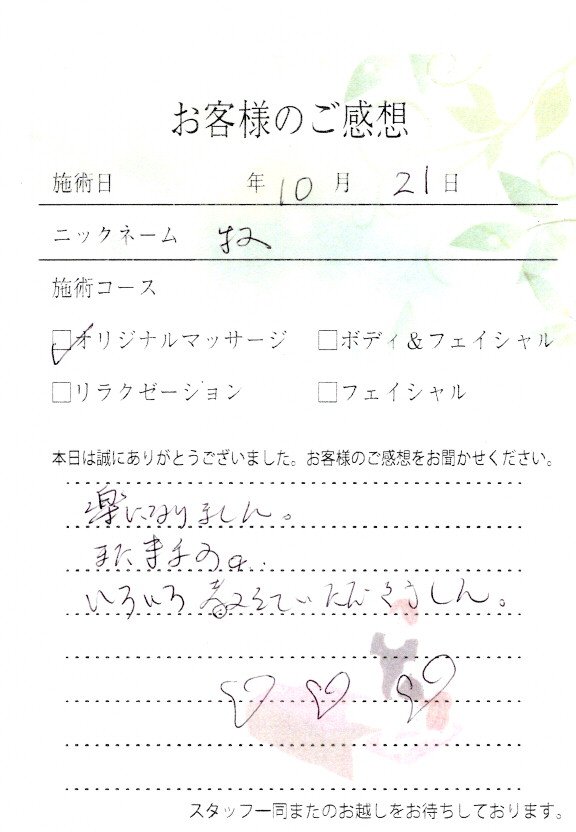 お客様のご感想
施術日 年 10 月 21 日
ニックネーム
施術コース
☑オリジナルマッサージ □ボディ&フェイシャル
□リラクゼーション □フェイシャル
本日は誠にありがとうございました。お客様のご感想をお聞かせください。
楽になりました。
また
いろいろ
スタッフ一同またのお越しをお待ちしております。